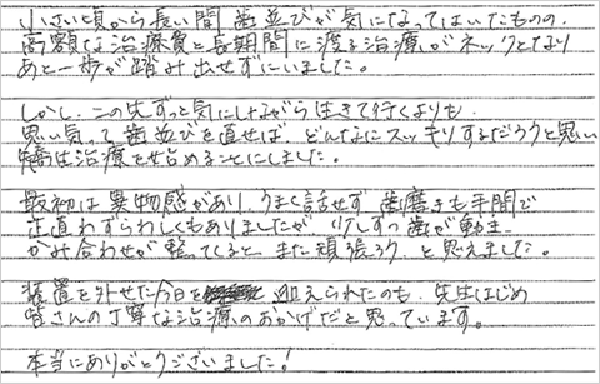 小さい頃から長い間 歯並びが気になってはいたものの、
高額な治療費と長期間に渡る治療がネックとなり
あと一歩が踏み出せずにいました。
しかし、この先ずっと気にしながら生きて行くよりも
思い気って歯並びを直せば、どんなにスッキリするだろうと思い
矯正治療を始めることにしました。
最初は異物感があり、うまく話せず 歯磨きも手間で
正直わずらわしくもありましたが 少しずつ歯が動き、
かみ合わせが整ってくると また頑張ろう、と思えました。
装置を外せた今日を 迎えられたのも、先生はじめ
皆さんの丁寧な治療のおかげだと思っています。
本当にありがとうございました!